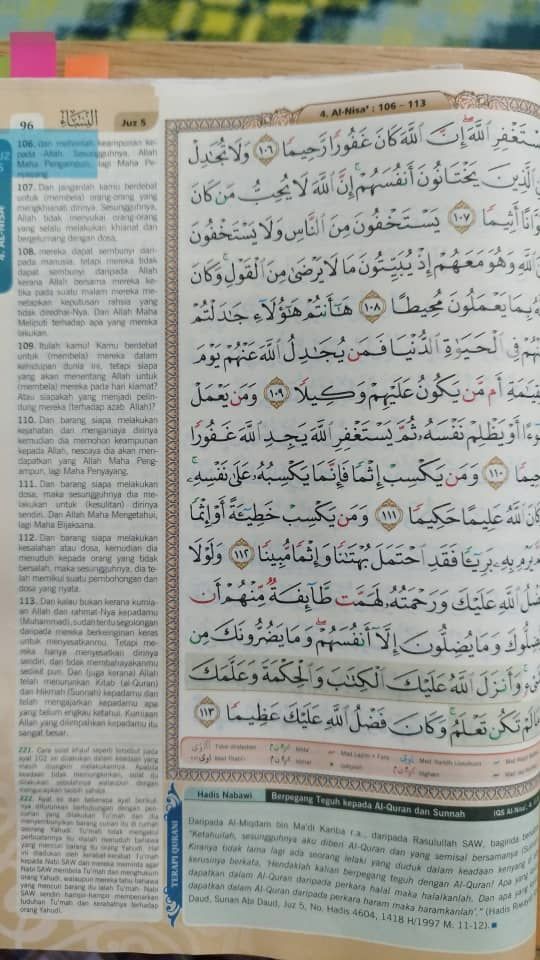 96
النِّسَاء
Juz 5
4. Al-Nisa' : 106 - 113
4. AL-NISA'
106. dan mohonlah keampunan ke-
pada Allah. Sesungguhnya, Allah
Maha Pengampun, lagi Maha Pe-
nyayang.
107. Dan janganlah kamu berdebat
untuk (membela) orang-orang yang
mengkhianati dirinya. Sesungguhnya,
Allah tidak menyukai orang-orang
yang selalu melakukan khianat dan
bergelumang dengan dosa,
108. mereka dapat sembunyi dari-
pada manusia, tetapi mereka tidak
dapat sembunyi daripada Allah
kerana Allah bersama mereka ke-
tika pada suatu malam mereka me-
netapkan keputusan rahsia yang
tidak diredhai-Nya. Dan Allah Maha
Meliputi terhadap apa yang mereka
lakukan.
109. Itulah kamu! Kamu berdebat
untuk (membela) mereka dalam
kehidupan dunia ini, tetapi siapa
yang akan menentang Allah untuk
(membela) mereka pada hari kiamat?
Atau siapakah yang menjadi pelin-
dung mereka (terhadap azab Allah)?
110. Dan barang siapa melakukan
kejahatan dan menganiaya dirinya
kemudian dia memohon keampunan
kepada Allah, nescaya dia akan men-
dapatkan yang Allah Maha Peng-
ampun, lagi Maha Penyayang.
111. Dan barang siapa melakukan
dosa, maka sesungguhnya dia me-
lakukan untuk (kesulitan) dirinya
sendiri. Dan Allah Maha Mengetahui,
lagi Maha Bijaksana.
112. Dan barang siapa melakukan
kesalahan atau dosa, kemudian dia
menuduh kepada orang yang tidak
bersalah, maka sesungguhnya, dia te-
lah memikul suatu pembohongan dan
dosa yang nyata.
113. Dan kalau bukan kerana kurnia-
an Allah dan rahmat-Nya kepadamu
(Muhammad), sudah tentu segolongan
daripada mereka berkeinginan keras
untuk menyesatkanmu. Tetapi me-
reka hanya menyesatkan dirinya
sendiri, dan tidak membahayakanmu
sedikit pun. Dan (juga kerana) Allah
telah menurunkan Kitab (al-Quran)
dan Hikmah (Sunnah) kepadamu dan
telah mengajarkan kepadamu apa
yang belum engkau ketahui. Kurniaan
Allah yang dilimpahkan kepadamu itu
sangat besar.
سْتَغْفِرِ اللَّهَ إِنَّ اللَّهَ كَانَ غَفُورًا رَّحِيمًا ١٠٦ وَلَا تُجَادِلْ
الَّذِينَ يَخْتَانُونَ أَنفُسَهُمْ إِنَّ اللَّهَ لَا يُحِبُّ مَن كَانَ
وَّانًا أَثِيمًا ١٠٧ يَسْتَخْفُونَ مِنَ النَّاسِ وَلَا يَسْتَخْفُونَ
اللَّهِ وَهُوَ مَعَهُمْ إِذْ يُبَيِّتُونَ مَا لَا يَرْضَىٰ مِنَ الْقَوْلِ وَكَانَ
بِمَا يَعْمَلُونَ مُحِيطًا ١٠٨ هَٰأَنتُمْ هَٰؤُلَاءِ جَادَلْتُمْ
هُمْ فِي الْحَيَاةِ الدُّنْيَا فَمَن يُجَادِلُ اللَّهَ عَنْهُمْ يَوْمَ
قِيَامَةِ أَم مَّن يَكُونُ عَلَيْهِمْ وَكِيلًا ١٠٩ وَمَن يَعْمَلْ
وءًا أَوْ يَظْلِمْ نَفْسَهُ ثُمَّ يَسْتَغْفِرِ اللَّهَ يَجِدِ اللَّهَ غَفُورًا
حِيمًا ١١٠ وَمَن يَكْسِبْ إِثْمًا فَإِنَّمَا يَكْسِبُهُ عَلَىٰ نَفْسِهِ
كَانَ اللَّهُ عَلِيمًا حَكِيمًا ١١١ وَمَن يَكْسِبْ خَطِيئَةً أَوْ إِثْمًا
يَرْمِ بِهِ بَرِيئًا فَقَدِ احْتَمَلَ بُهْتَانًا وَإِثْمًا مُّبِينًا ١١٢ وَلَوْلَا
ضْلُ اللَّهِ عَلَيْكَ وَرَحْمَتُهُ لَهَمَّت طَّائِفَةٌ مِّنْهُمْ أَن
ضِلُّوكَ وَمَا يُضِلُّونَ إِلَّا أَنفُسَهُمْ وَمَا يَضُرُّونَكَ مِن
شَيْءٍ وَأَنزَلَ اللَّهُ عَلَيْكَ الْكِتَابَ وَالْحِكْمَةَ وَعَلَّمَكَ
مَا لَمْ تَكُن تَعْلَمُ وَكَانَ فَضْلُ اللَّهِ عَلَيْكَ عَظِيمًا ١١٣
TERAPI QURANI
Hadis Nabawi
Berpegang Teguh kepada Al-Quran dan Sunnah
Daripada Al-Miqdam bin Ma'di Kariba r.a., daripada Rasulullah SAW, baginda
"Ketahuilah, sesungguhnya aku diberi Al-Quran dan yang semisal bersamanya
Kiranya tidak lama lagi ada seorang lelaki yang duduk dalam keadaan kenyang di
kerusinya berkata, 'Hendaklah kalian berpegang teguh dengan Al-Quran! Apa yang
dapatkan dalam Al-Quran daripada perkara halal maka halalkanlah. Dan apa yang
dapatkan dalam Al-Quran daripada perkara haram maka haramkanlah'." (Hadis
Daud, Sunan Abi Daud, Juz 5, No. Hadis 4604, 1418 H/1997 M. 11-12).